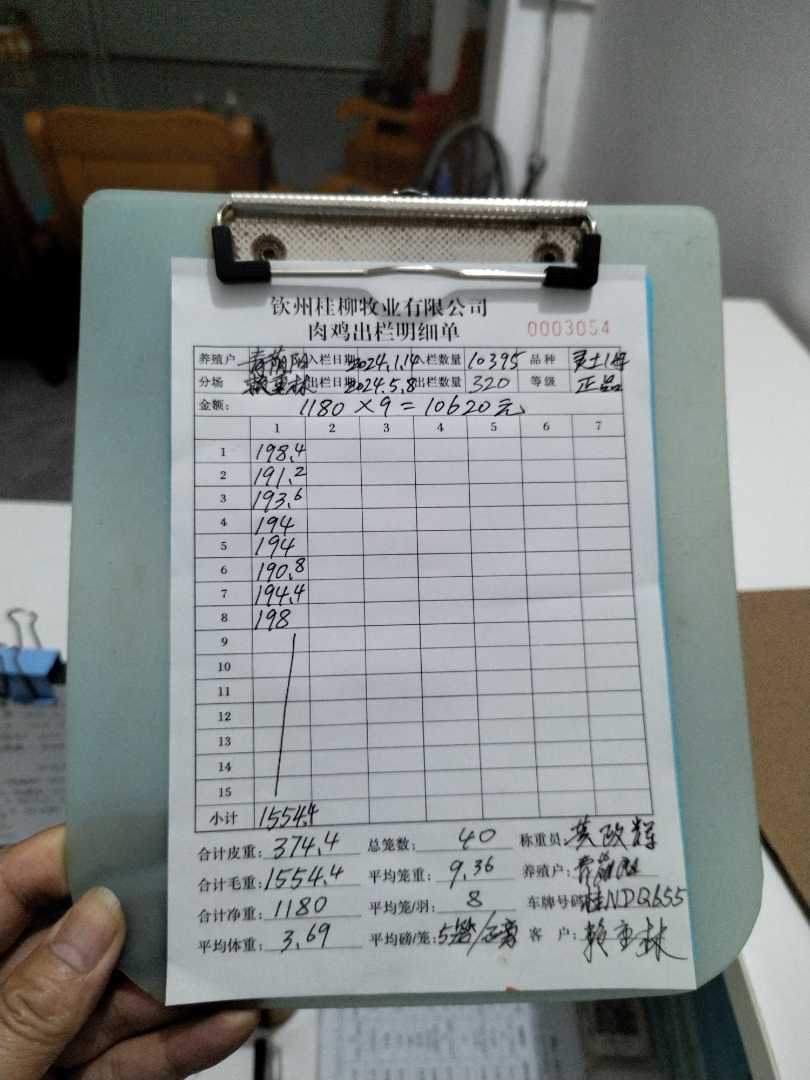 钦州桂柳牧业有限公司
肉鸡出栏明细单 0003054
养殖户 入栏日期 2024.1.14 入栏数量 10395 品种 灵土1母
分场 出栏日期 2024.5.8 出栏数量 320 等级 正品
金额: 1180×9=10620元
1 2 3 4 5 6 7
1 198.4
2 191.2
3 193.6
4 194
5 194
6 190.8
7 194.4
8 198
9
10
11
12
13
14
15
小计 1554.4
合计皮重: 374.4 总笼数: 40 称重员: 黄政辉
合计毛重: 1554.4 平均笼重: 9.36 养殖户:
合计净重: 1180 平均笼/羽: 8 车牌号码: 桂NDQ655
平均体重: 3.69 平均磅/笼: 5 客 户: